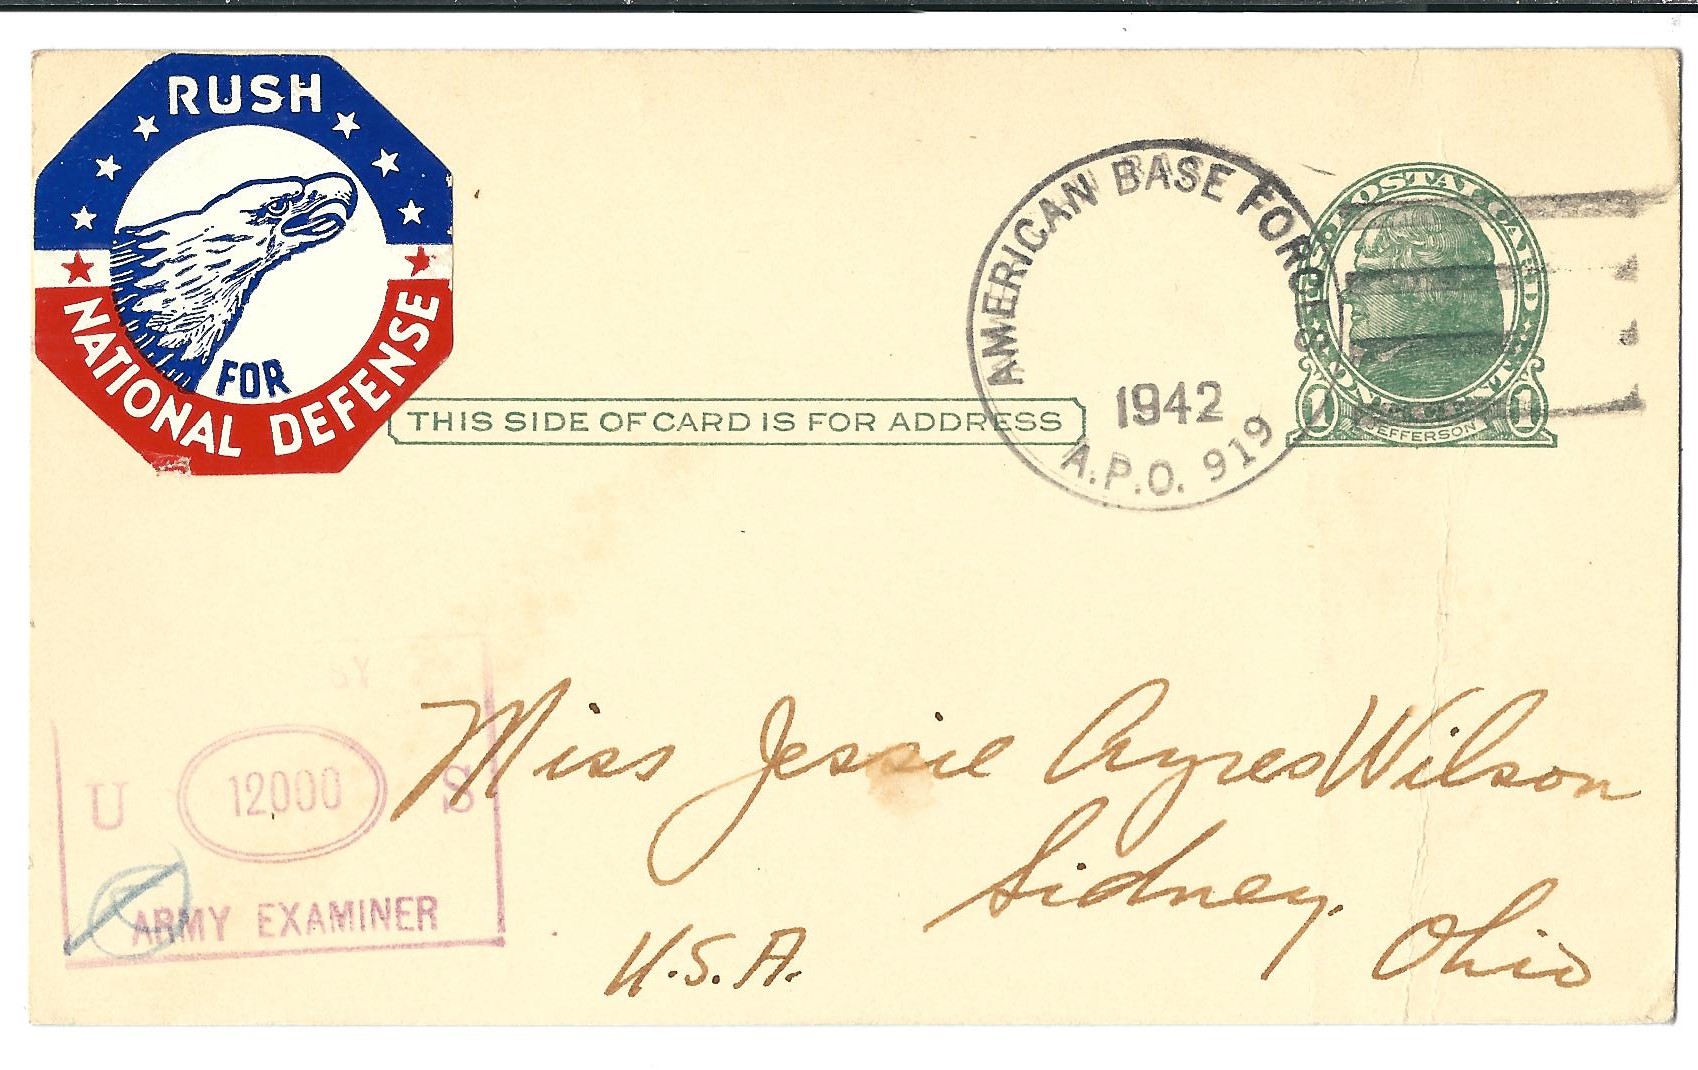 RUSH
FOR
NATIONAL DEFENSE
THIS SIDE OF CARD IS FOR ADDRESS
AMERICAN BASE FORCES
1942
A.P.O. 919
POSTAL CARD
ONE CENT
1 1
JEFFERSON
BY
U 12000 S
ARMY EXAMINER
Miss Jessie Ayres Wilson
Sidney,
Ohio
U.S.A.